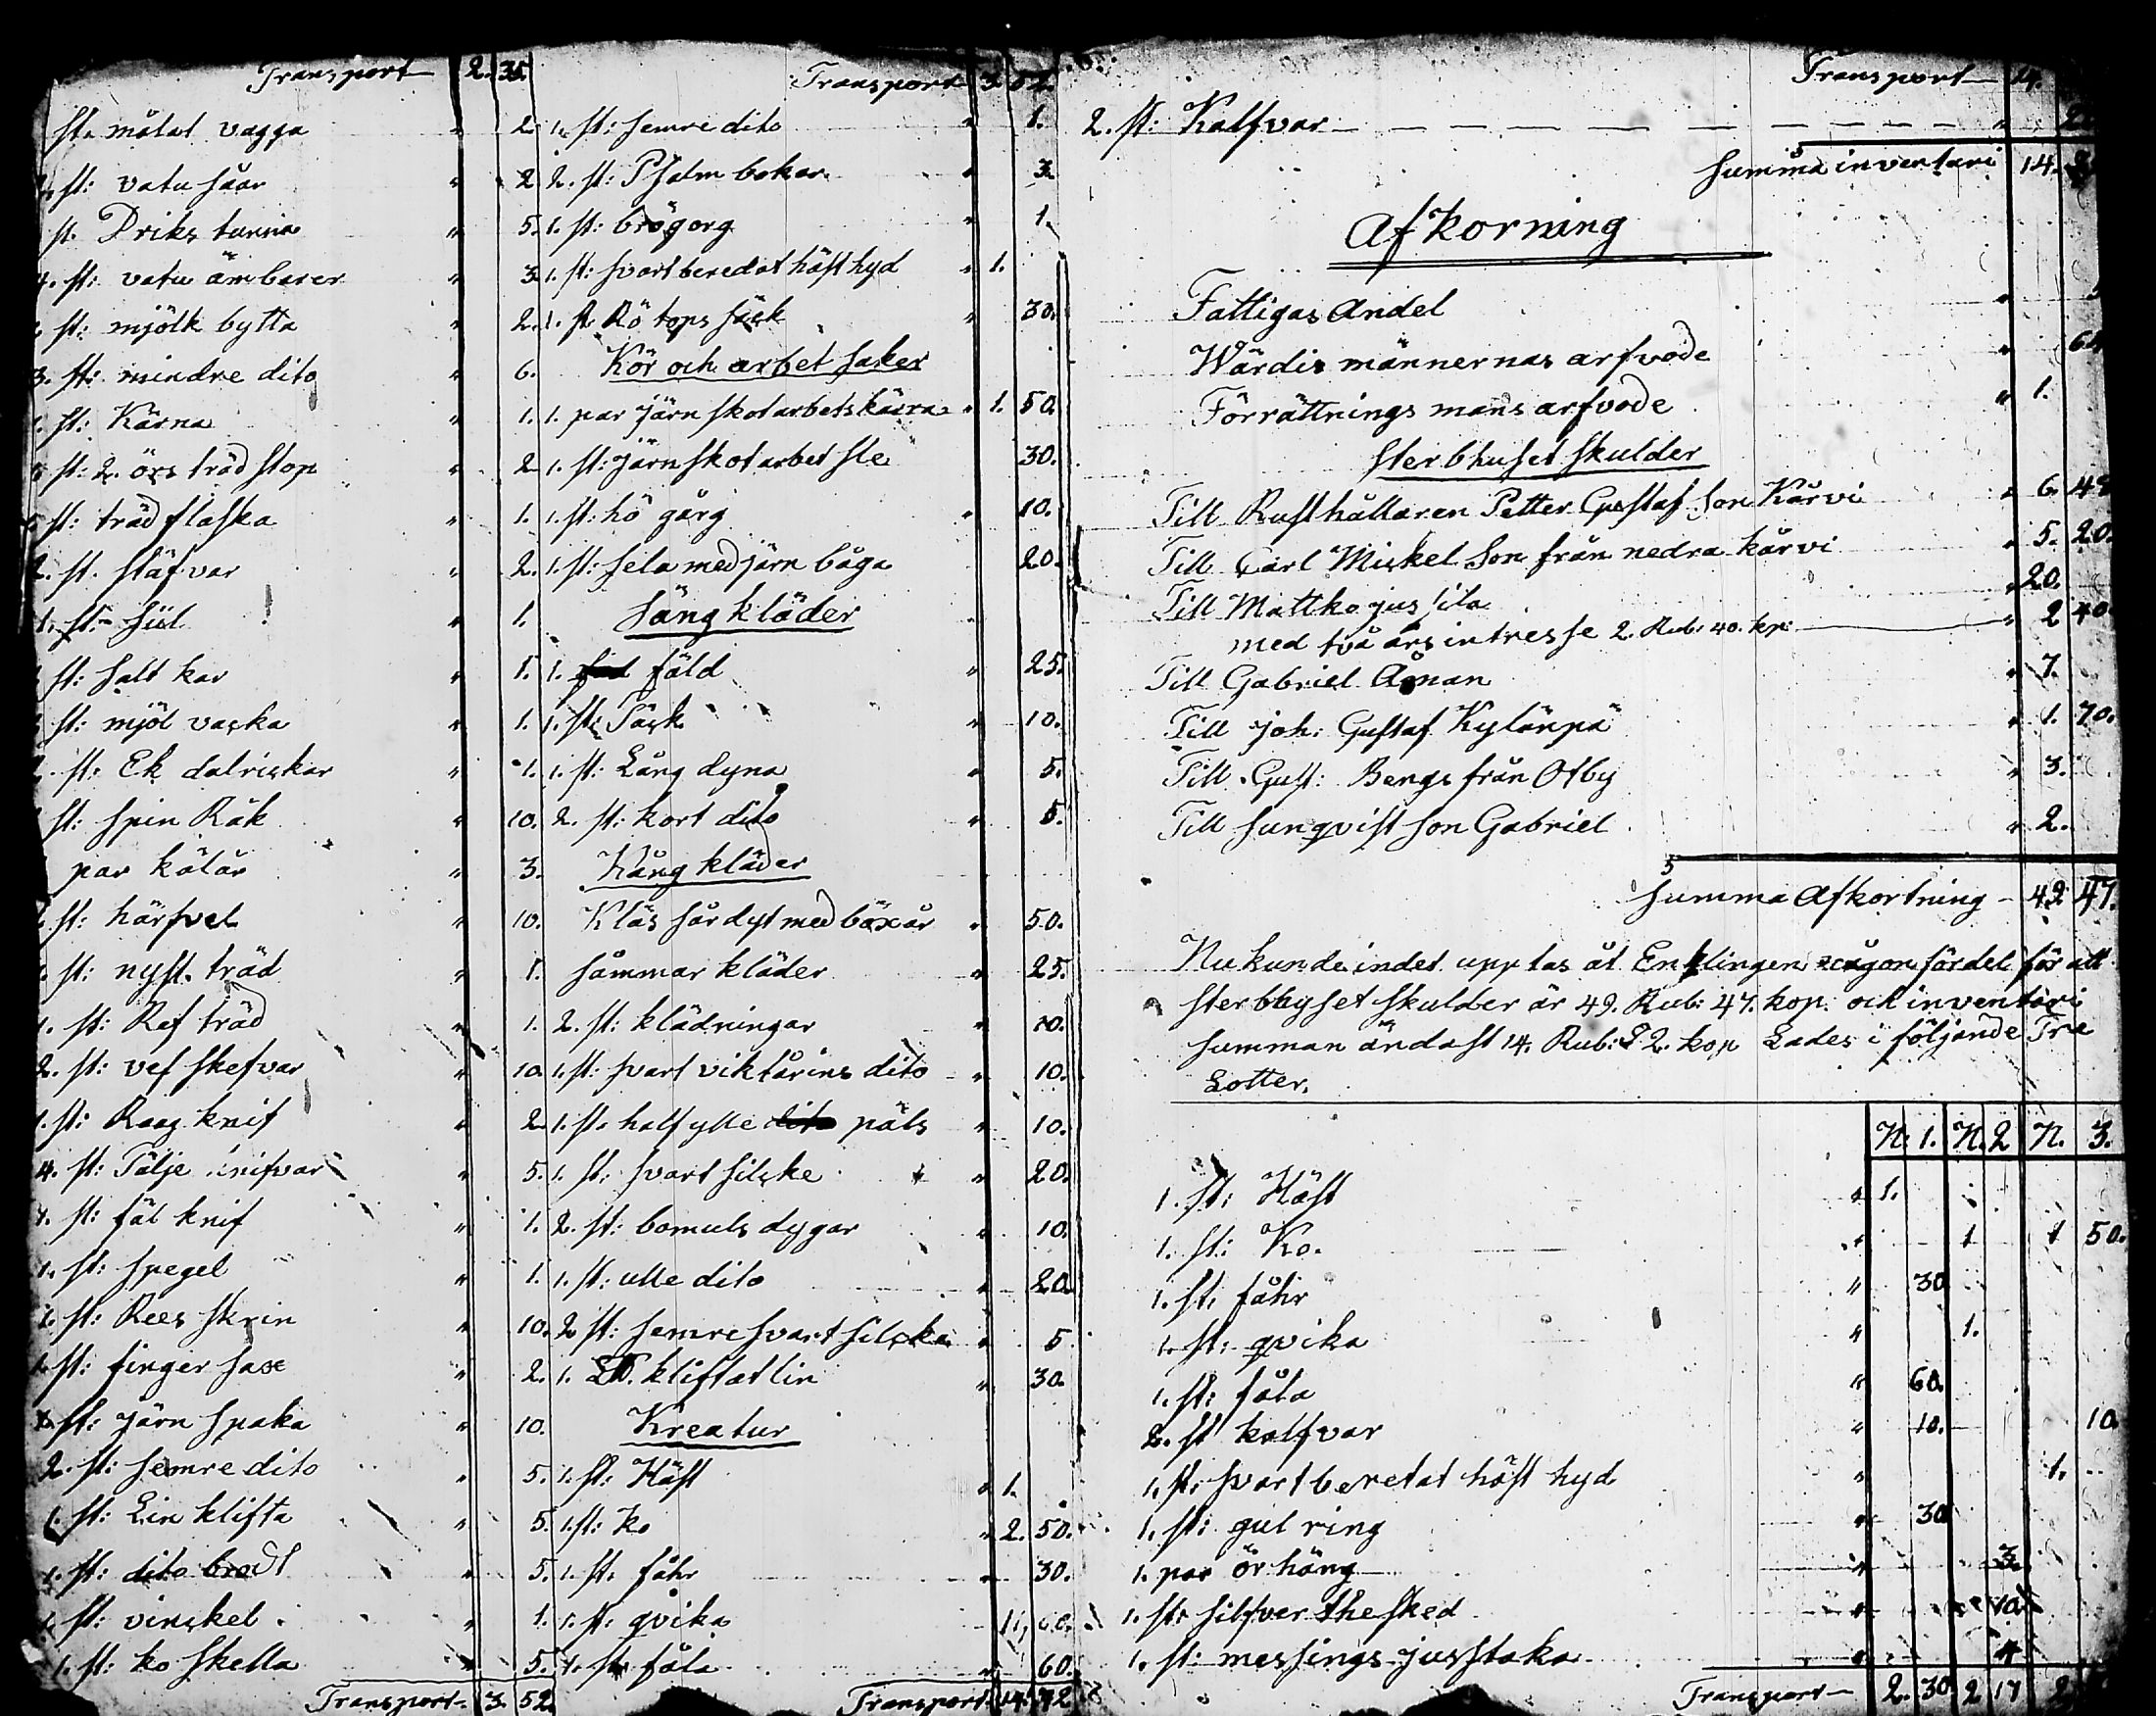 Transport 2. 35.
st. målat vagga " 2.
st: vatu såar " 2
st. Driks tunna " 5.
4. st: vatu ämbarer " 3
st: mjölk bytta " 2.
3. st: mindre dito " 6.
1. st: Kärna " 1.
st: 2. örs träd stop " 2
st: träd flaska " 1.
2. st. stäfvar " 2.
1. st: siil " 1.
st: salt kar " 1.
st: mjöl vacka " 1.
st: Ek dalriskar " 1.
st: spin Råk " 10.
par kålår " 3.
st: härfvel " 10.
st: nyst. träd " 1.
1. st: Ref träd " 1.
2. st: vef skefvar " 10.
1. st: Raag knif " 2.
4. st: Tälje knifvar " 5.
1. st: fäl knif " 1.
1. st: spegel " 1.
1. st: Rees skrin " 10.
1. st: finger saxe " 2.
st: järn spaka " 10.
2. st: semre dito " 5.
1. st: Lin klifta " 5.
1. st: dito brodt " 5.
1. st: vinckel " 1.
1. st: ko skella " 5.
Transport 3. 52.
Transport 3 52.
1. st: semre dito " 1.
2. st: Psalm bokar " 3.
1. st: brögorg " 1.
1. st: svart beredat häst hyd " 1.
1. st Rö tops säck " 30.
Kör och arbet saker
1. par järn skot arbets kärra " 1. 50.
1. st: järn skot arbet sle 30.
1. st: hö gårg " 10.
1. st: sela med järn båga 20.
Säng kläder
1. fäld " 25.
1. st: Säck " 10.
1. st: Lång dyna " 5.
2. st: kort dito " 5.
Kång kläder
Kläs sårdyt med böxår " 50.
såmmar kläder " 25.
2. st: klädningar " 10.
1. st: svart viktårins dito " 10.
1. st. half ylle dito päls " 10.
1. st: svart silcke " 20.
2. st: bomuls dygar " 10.
1. st: ulle dito " 20.
2 st: semre svart silcke " 5
1. LW. kliftat lin " 30.
Kreatur
1. st: Häst " 1.
1. st: ko " 2. 50.
1. st. fåhr " 30.
1. st: qvika
1. st. fåla " 60.
Transport
Transport 14.
2. st: Kalfvar "
Summa inventari 14.
Afkorning
Fattigas Andel "
Wärdis männernas arfvode "
Förrättnings mans arfvode " 1.
Sterbhuset Skulder
Till Rusthållaren Petter Gustaf Son Kårvi " 6.
Till Carl Mickel Son från nedra kårvi " 5. 20.
Till Mattko jussila " 20.
med två års intresse 2. Rub: 40. kp: " 2 40
Till Gabriel Åman " 7.
Till joh: Gustaf Kylänpä " 1. 70.
Till Gust: Bengs från Otby " 3.
Till Sunqvist son Gabriel " 2.
Summa Afkortning 49 47.
Nu kunde indet upp tas åt Enklingen någon fördel för att
Sterbhyset skulder är 49. Rub: 47. kop: och inventari
Summan ändast 14. Rub: 82. kop Lades i följande Tre
Lotter.
N: 1. N. 2 N. 3.
1. st: Häst " 1.
1. st: Ko. " 1 1 50.
1. st. fåhr " 30
1. st: qvika " 1.
1. st: fåla " 60.
2. st kalfvar " 10. 10
1. st: svart beretat häst hyd " 1.
1. st: gul ring " 30
1. par ör häng " 3.
1. st: silfver the sked " 10
1. st: messings jusstaka " 4
Transport 2. 30 2 17 2